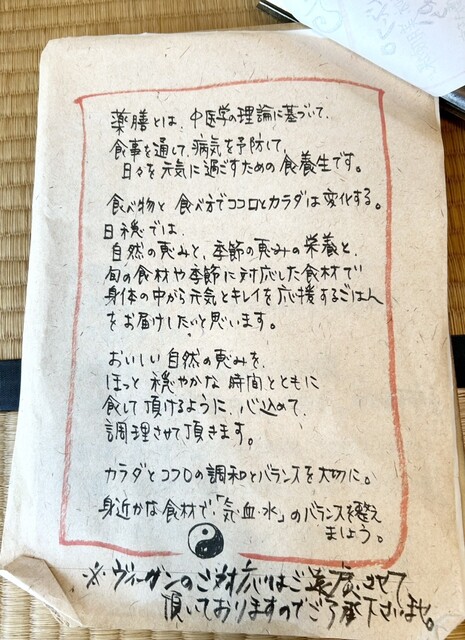 薬膳とは、中医学の理論に基づいて、
食事を通して、病気を予防して、
日々を元気に過ごすための食養生です。
食べ物と食べ方でココロとカラダは変化する。
日穏では、
自然の恵みと、季節の恵みの栄養と、
旬の食材や季節に対応した食材で
身体の中から元気とキレイを応援するごはん
をお届けしたいと思います。
おいしい自然の恵みを、
ほっと穏やかな時間とともに
食して頂けるように、心込めて、
調理させて頂きます。
カラダとココロの調和とバランスを大切に。
身近かな食材で、「気・血・水」のバランスを整え
ましょう。
※ヴィーガンのご対応はご遠慮させて
頂いておりますのでご了承下さいませ。